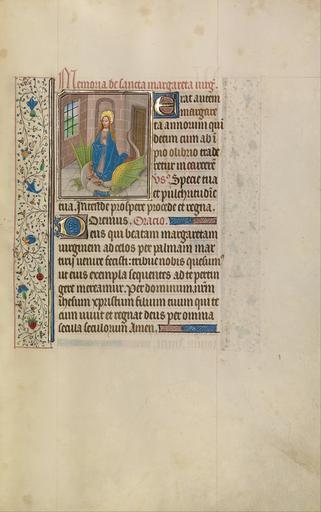 Memoria de sancta margareta uirg.
Erat autem
margare
ta annorum qui
decim cum ab i
pio olibrio trade
retur in carcerē
vs̄ Specie tua
et pulchritudīe
tua Intende prospere procede et regna.
Oremus. Oracio.
Deus qui beatam margaretam
uirginem ad celos per palmam mar
tirij uenire fecisti: tribue nobis quesumꝰ
ut eius exempla sequentes ad te pertin
gere mereamur. Per dominum nr̄m
ihesum xpristum filium tuum qui te
cum uiuit et regnat deus per omnia
secula seculorum Amen.